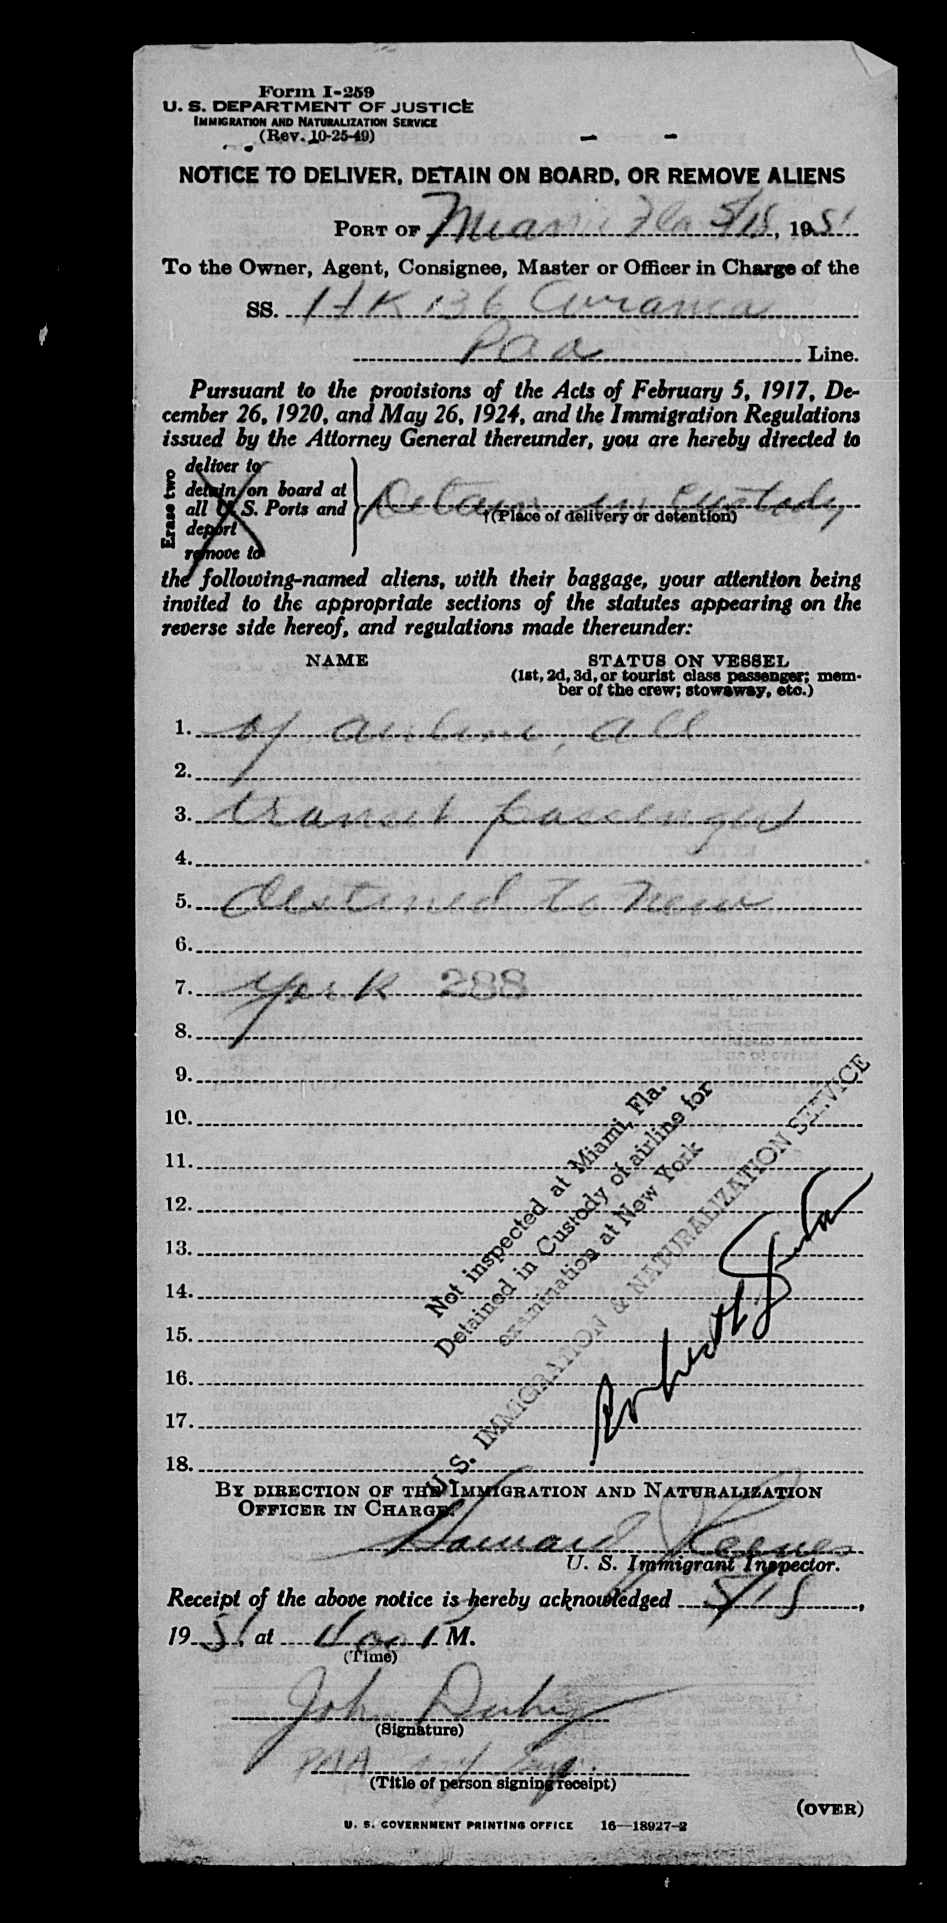 Form I-259
U. S. DEPARTMENT OF JUSTICE
IMMIGRATION AND NATURALIZATION SERVICE
(Rev. 10-25-49)
NOTICE TO DELIVER, DETAIN ON BOARD, OR REMOVE ALIENS
PORT OF Miami Fla 5/18, 1951
To the Owner, Agent, Consignee, Master or Officer in Charge of the
SS. HK 136
Paa Line.
Pursuant to the provisions of the Acts of February 5, 1917, De-
cember 26, 1920, and May 26, 1924, and the Immigration Regulations
issued by the Attorney General thereunder, you are hereby directed to
Erase two
deliver to
detain on board at
all U. S. Ports and
deport
remove to
Detain in Custody
†(Place of delivery or detention)
the following-named aliens, with their baggage, your attention being
invited to the appropriate sections of the statutes appearing on the
reverse side hereof, and regulations made thereunder:
NAME STATUS ON VESSEL
(1st, 2d, 3d, or tourist class passenger; mem-
ber of the crew; stowaway, etc.)
1. of airline, all
2.
3. transit passengers
4.
5. destined to New
6.
7. York 288
8.
9.
10.
11.
12.
13.
14.
15.
16.
17.
18.
Not inspected at Miami, Fla.
Detained in Custody of airline for
examination at New York
U. S. IMMIGRATION & NATURALIZATION SERVICE
BY DIRECTION OF THE IMMIGRATION AND NATURALIZATION
OFFICER IN CHARGE.
Howard Reeves
U. S. Immigrant Inspector.
Receipt of the above notice is hereby acknowledged 5/18,
1951, at M.
(Time)
John
(Signature)
PAA
(Title of person signing receipt)
(OVER)
U. S. GOVERNMENT PRINTING OFFICE 16—18927-2